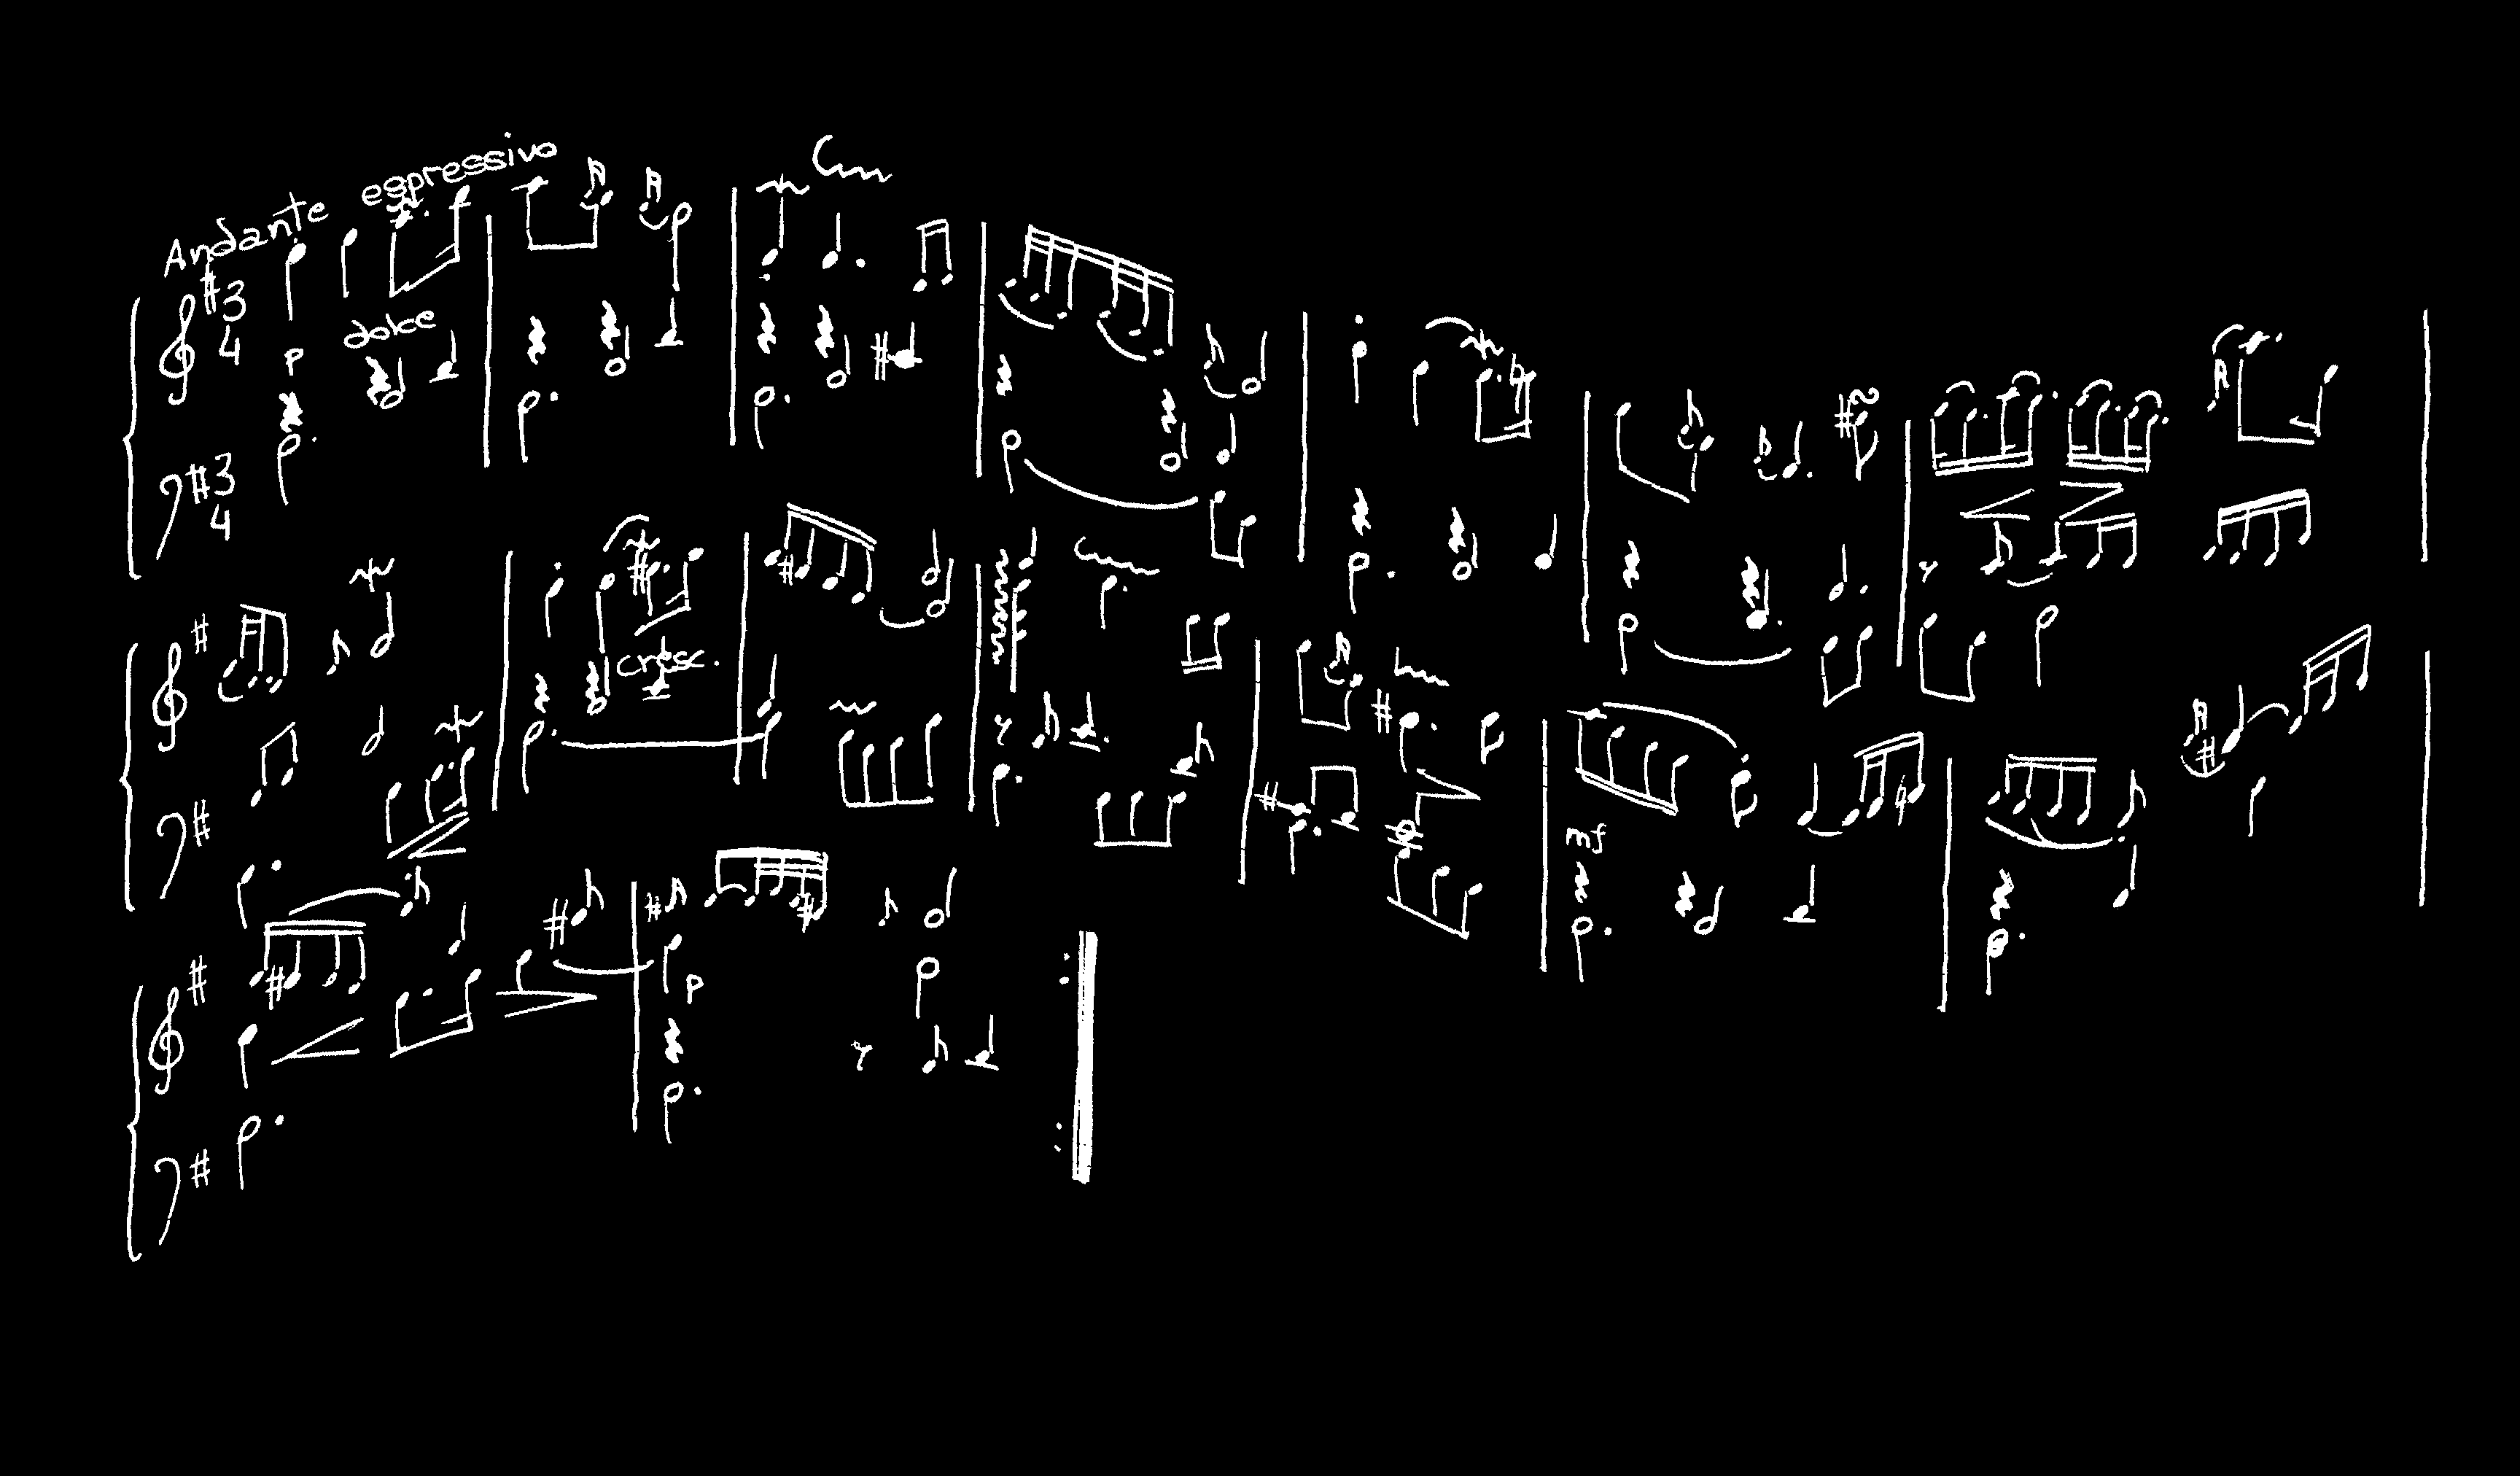 Andante espressivo
3
4
p
dolce
3
4
cresc.
mf
p